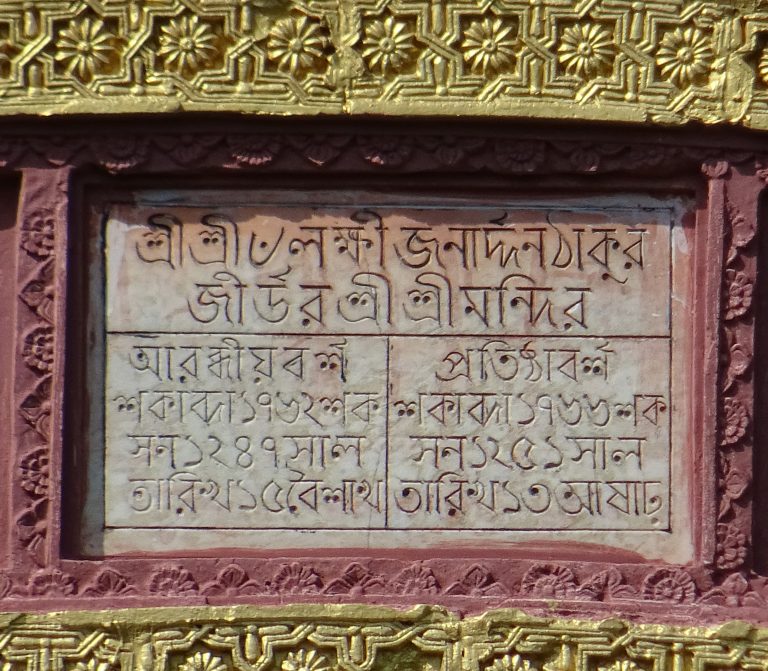 শ্রীশ্রী৺লক্ষী জনার্দ্দন ঠাকুর
জীর্উর শ্রীশ্রীমন্দির
আরম্ভীয় বর্শ
শকাব্দা ১৭৬২ শক
সন ১২৪৭ সাল
তারিখ ১৫ বৈশাখ
প্রতিষ্ঠা বর্শ
শকাব্দা ১৭৬৬ শক
সন ১২৫১ সাল
তারিখ ১৩ আষাঢ়